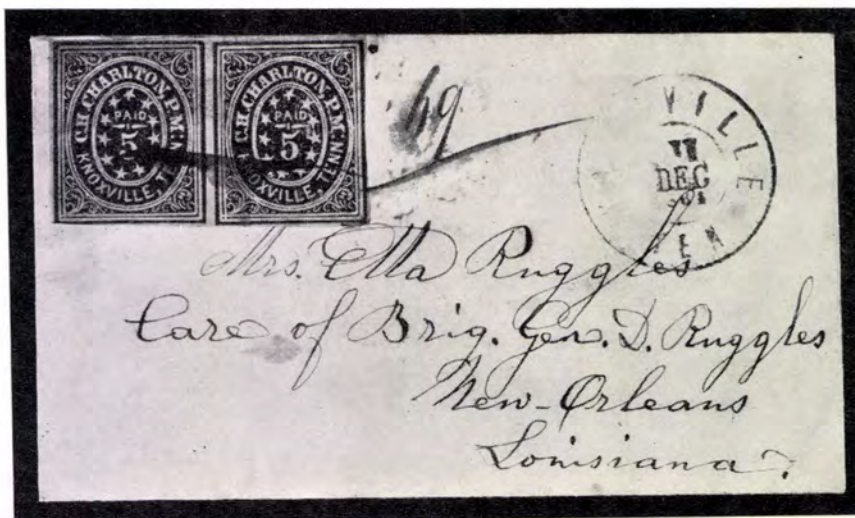 C.H. CHARLTON, P.M.
PAID
5
KNOXVILLE, TENN.
C.H. CHARLTON, P.M.
PAID
5
KNOXVILLE, TENN.
69
VILLE
DEC
TEN
Mrs. Ella Ruggles
Care of Brig. Gen. D. Ruggles
New-Orleans
Louisiana.